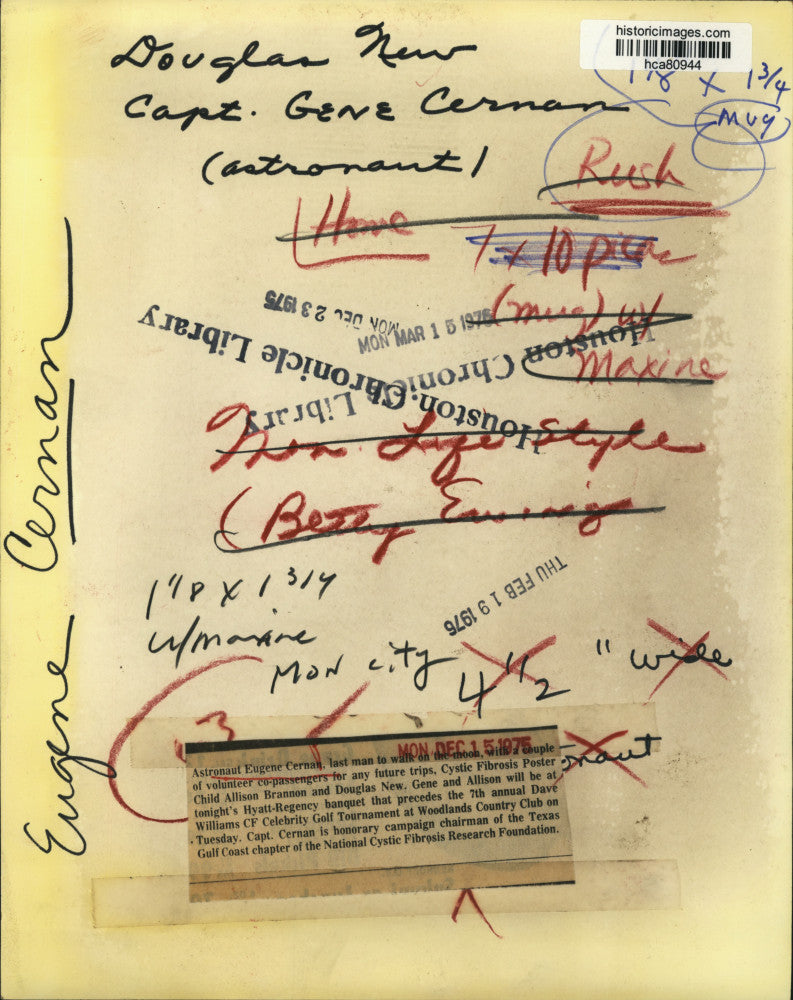 historicimages.com
hca80944
Douglas New
1 1/8 x 1 3/4
Capt. GENE Cernan
mug
(astronaut)
Rush
Home
7 x 10 picas
MON DEC 23 1975
MON MAR 15 1976
(mug) w/
Maxine
Houston Chronicle Library
Houston Chronicle Library
Mon. Life Style
(Betty Ewing
THU FEB 19 1976
1 1/8 x 1 3/4
w/maxine
Mon city
4 1/2 " wide
3
MON DEC 15 1975
Astronaut Eugene Cernan, last man to walk on the moon, with a couple
of volunteer co-passengers for any future trips, Cystic Fibrosis Poster
Child Allison Brannon and Douglas New. Gene and Allison will be at
tonight's Hyatt-Regency banquet that precedes the 7th annual Dave
Williams CF Celebrity Golf Tournament at Woodlands Country Club on
Tuesday. Capt. Cernan is honorary campaign chairman of the Texas
Gulf Coast chapter of the National Cystic Fibrosis Research Foundation.
Eugene Cernan